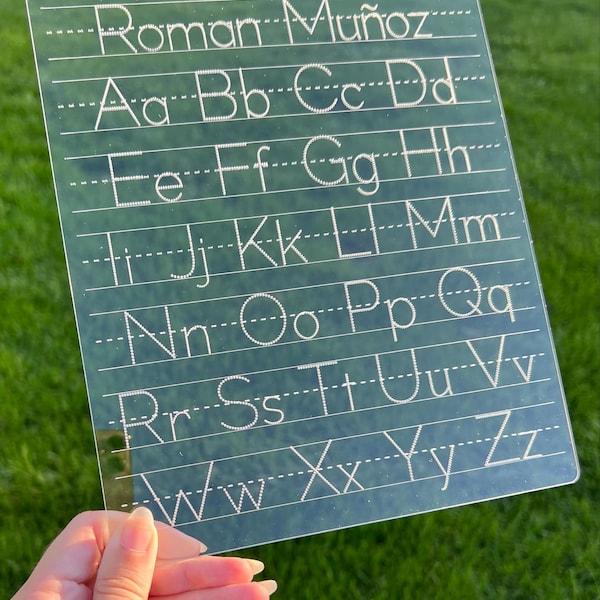 Roman Muñoz
Aa Bb Cc Dd
Ee Ff Gg Hh
Ii Jj Kk Ll Mm
Nn Oo Pp Qq
Rr Ss Tt Uu Vv
Ww Xx Yy Zz